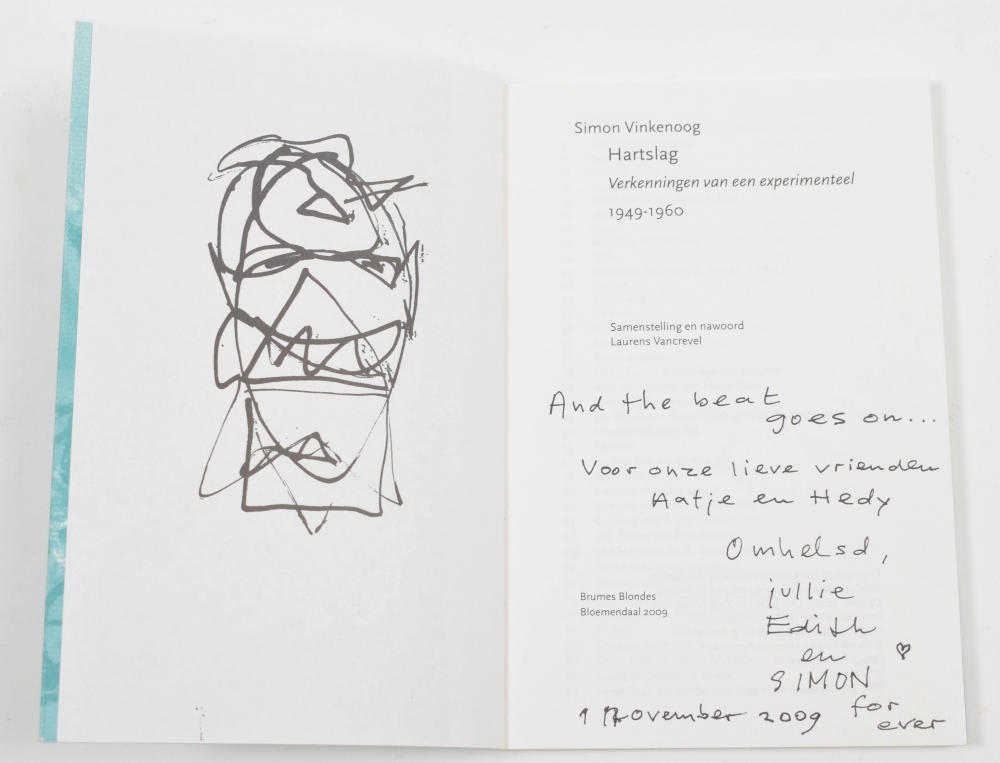 Simon Vinkenoog
Hartslag
Verkenningen van een experimenteel
1949-1960
Samenstelling en nawoord
Laurens Vancrevel
And the beat
goes on...
Voor onze lieve vrienden
Aatje en Hedy
Omhelsd,
jullie
Edith
en
SIMON
for
ever
1 November 2009
Brumes Blondes
Bloemendaal 2009